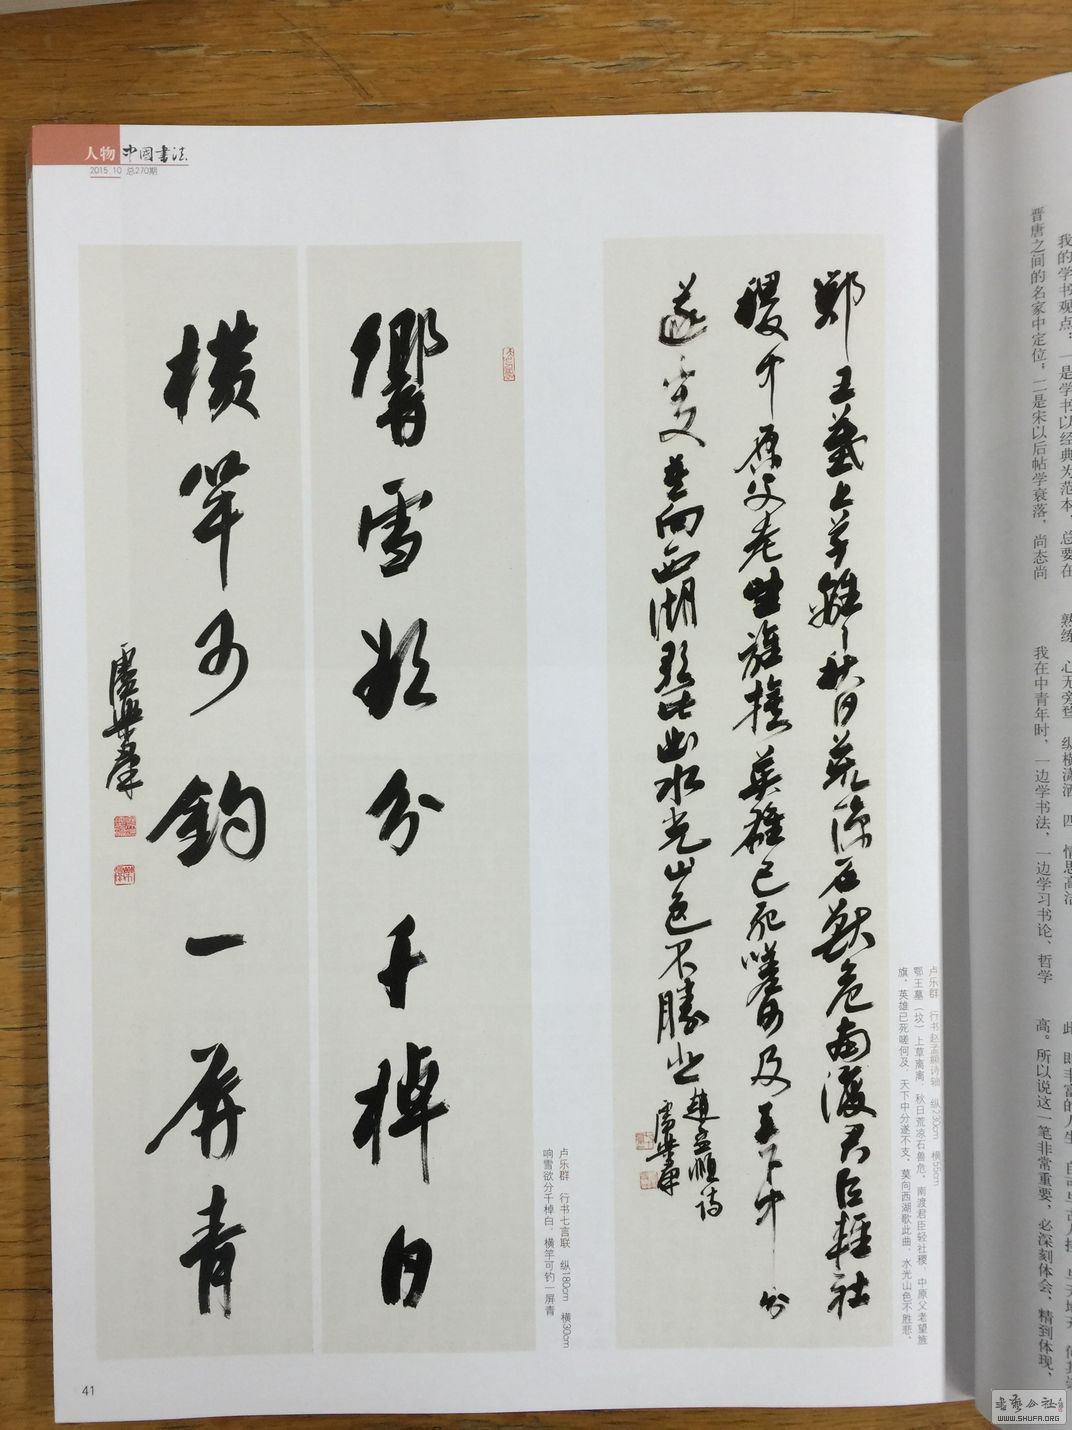 人物 中国书法
2015.10 总270期
鄂王墓上草離離秋日荒涼石獸危南渡君臣輕社
稷中原父老望旌旗英雄已死嗟何及天下中分
遂不支莫向西湖歌此曲水光山色不勝悲
趙孟頫詩
盧樂群
卢乐群 行书赵孟頫诗轴 纵230cm 横55cm
鄂王墓（坟）上草离离，秋日荒凉石兽危。南渡君臣轻社稷，中原父老望旌
旗。英雄已死嗟何及，天下中分遂不支。莫向西湖歌此曲，水光山色不胜悲。
響雪欲分千棹白
橫竿可釣一屏青
盧樂群
卢乐群 行书七言联 纵180cm 横30cm
响雪欲分千棹白，横竿可钓一屏青
41
我的学书观点：一是学书以经典为范本，总要在
晋唐之间的名家中定位，二是宋以后帖学衰落，尚态尚
熟练 心无旁骛 纵横潇洒 四 情思高洁
我在中青年时，一边学书法，一边学习书论、哲学
高。所以说这一笔非常重要，必深刻体会，精到体现，
書藝公社
WWW.SHUFA.ORG